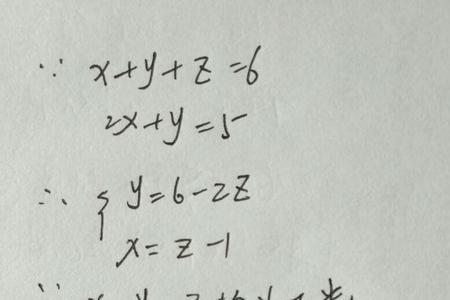 ∵ x+y+z=6
2x+y=5
∴ { y=6-2z
x=z-1
∵